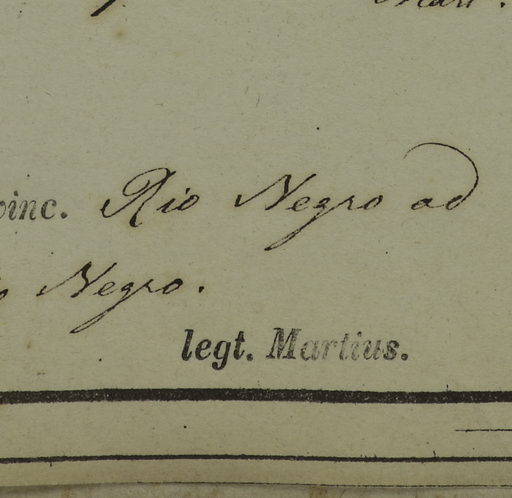 Mart.
Rio Negro ad
Negro.
legt. Martius.